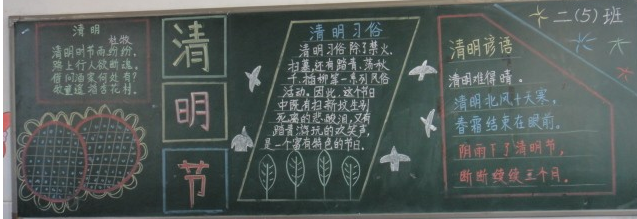 清明
杜牧
清明时节雨纷纷,
路上行人欲断魂,
借问酒家何处有?
牧童遥指杏花村。
清
明
节
清明习俗
清明习俗除了禁火、
扫墓,还有踏青、荡秋
千、插柳等一系列风俗
活动。因此,这个节日
中既有扫新坟生别
死离的悲酸泪,又有
踏青游玩的欢笑声,
是一个富有特色的节日。
二(5)班
清明谚语
清明难得晴。
清明北风十天寒,
春霜结束在眼前。
阴雨下了清明节,
断断续续三个月。